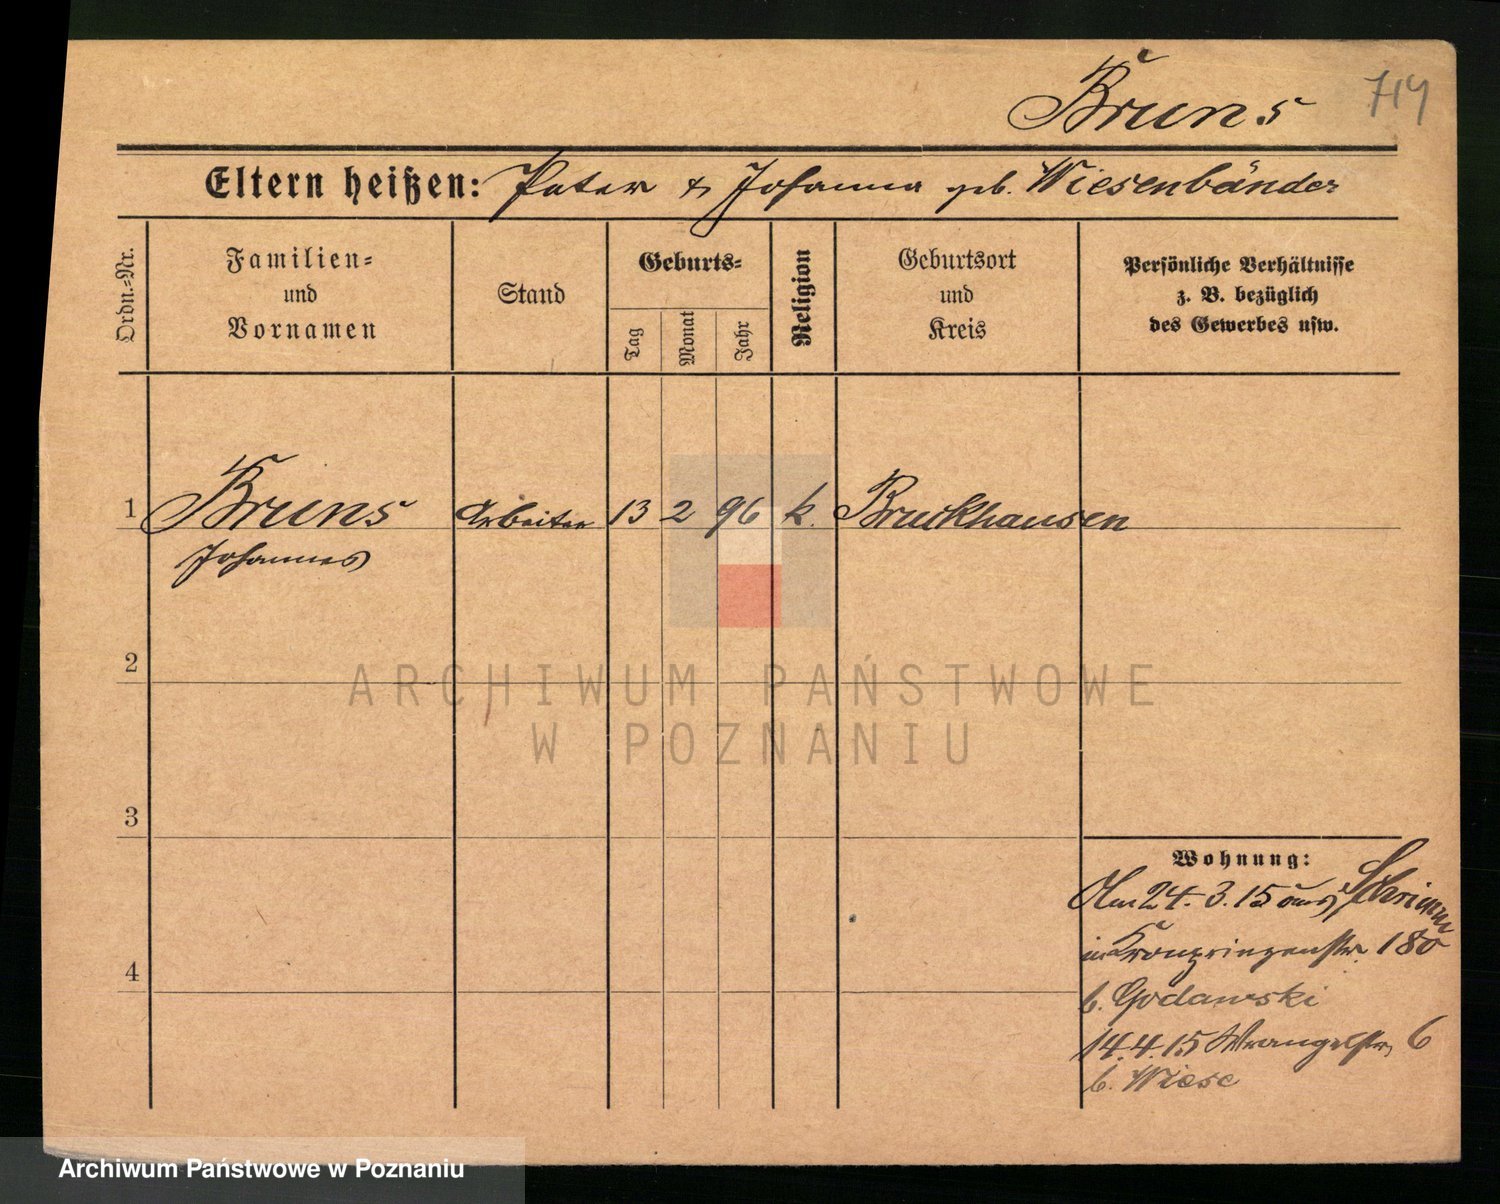 Bruns 719
Eltern heißen: Peter & Johanna geb. Wiesenbänder
Ordn.-Nr.
Familien-
und
Vornamen
Stand
Geburts-
Tag
Monat
Jahr
Religion
Geburtsort
und
Kreis
Persönliche Verhältnisse
z. B. bezüglich
des Gewerbes usw.
1 Bruns Arbeiter 13 2 96 k. Bruckhausen
Johannes
2
3
4
Wohnung:
Am 24.3.15 aus Schrimm
in Kronprinzenstr. 180
b. Godawski
14.4.15 Wrangelstr. 6
b. Wiese
ARCHIWUM PAŃSTWOWE
W POZNANIU
Archiwum Państwowe w Poznaniu